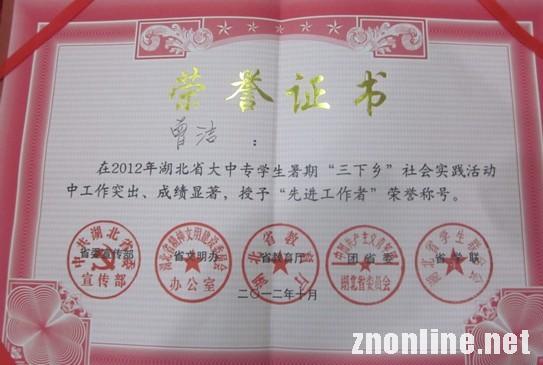 荣誉证书
曾洁：
在2012年湖北省大中专学生暑期“三下乡”社会实践活动
中工作突出、成绩显著，授予“先进工作者”荣誉称号。
省委宣传部 省文明办 省教育厅 团省委 省学联
中共湖北省委
宣传部
办公室
湖北省教育厅
湖北省委员会
湖北省学生联合会
二〇一二年十月
znonline.net